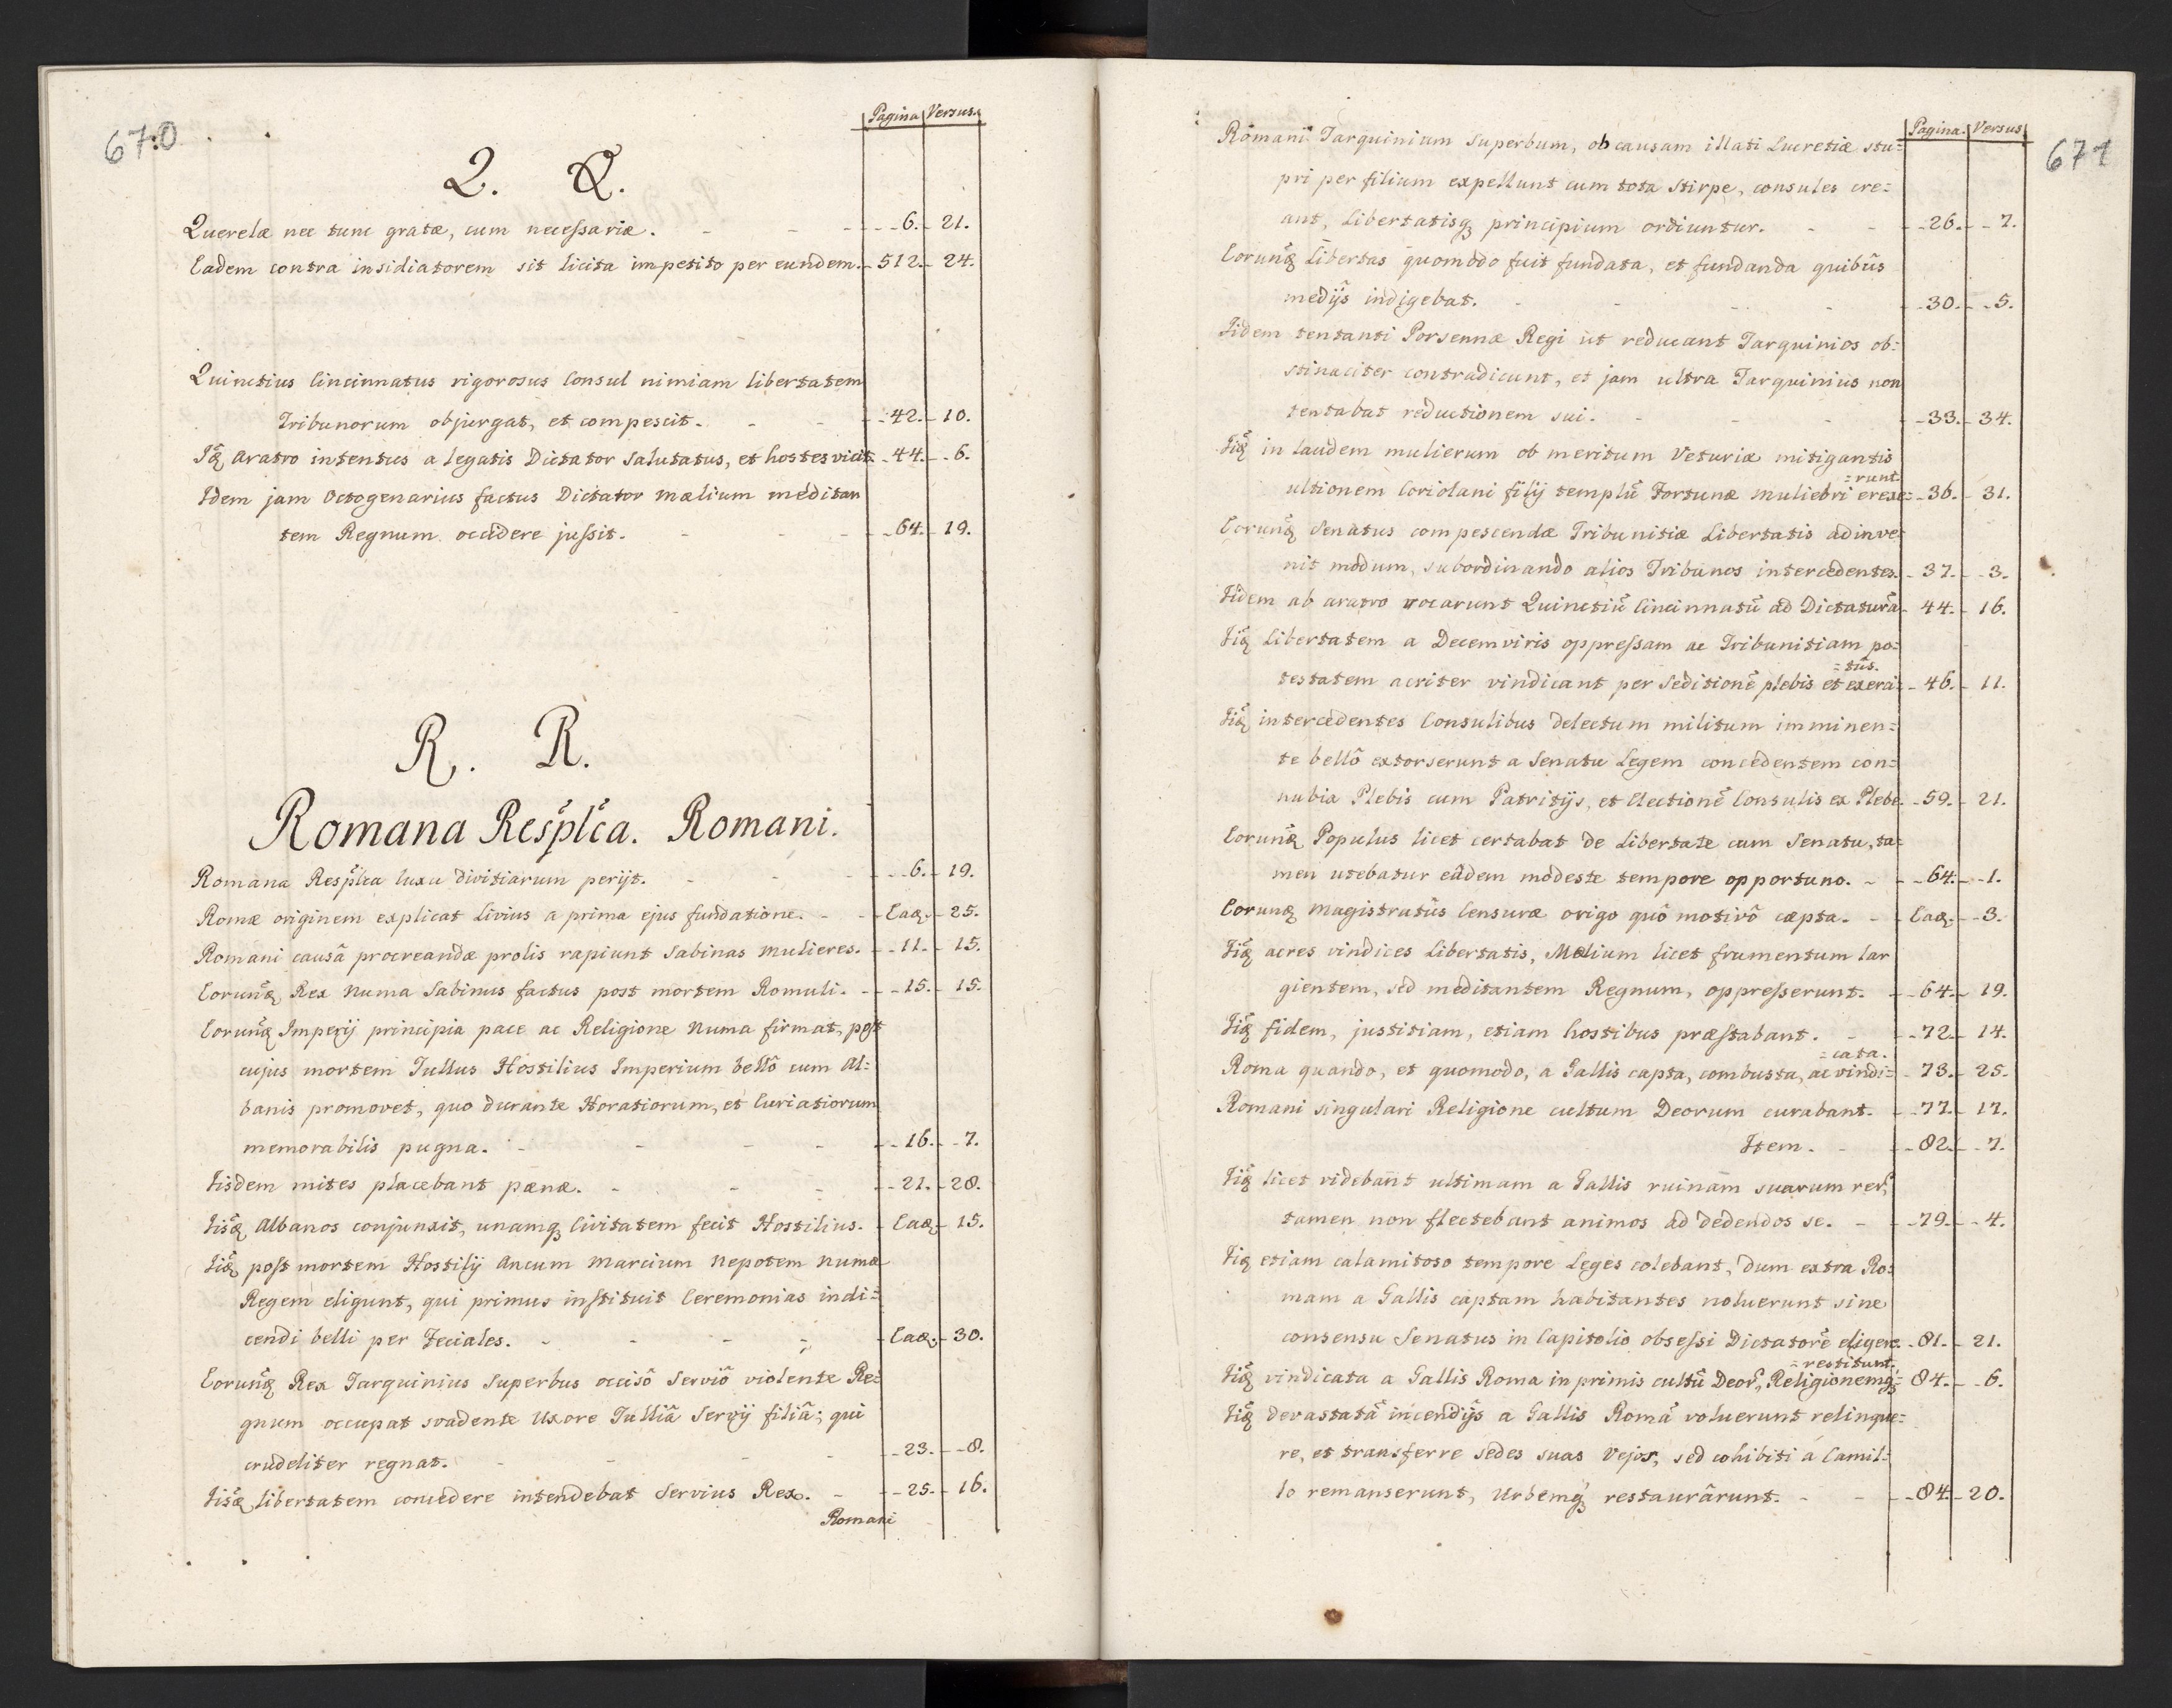 670
Pagina Versus.
Q. Q.
Querelæ nec tunc gratæ, cum necessariæ. - - - 6. 21.
Eadem contra insidiatorem sit licita impetito per eundem. 512. 24.
Quinctius Cincinnatus rigorosus Consul nimiam libertatem
Tribunorum objurgat, et compescit. - - 42. 10.
Idẽ aratro intentus a legatis Dictator salutatus, et hostes vicit. 44. 6.
Idem jam Octogenarius factus Dictator Mælium meditan
tem Regnum occidere jussit. - - - 64. 19.
R. R.
Romana Resplca. Romani.
Romana Resplca luxu divitiarum perijt. - - - 6. 19.
Romæ originem explicat Livius a prima ejus fundatione. - Eaq. 25.
Romani causâ procreandæ prolis rapiunt Sabinas mulieres. 11. 15.
Eorunq Rex Numa Sabinus factus post mortem Romuli. - 15. 15.
Eorunq Imperij principia pace ac Religione Numa firmat, post
cujus mortem Tullus Hostilius Imperium bellô cum Al=
banis promovet, quo durante Horatiorum, et Curiatiorum
memorabilis pugna. - - - 16. 7.
Iisdem mites placebant pænæ. - - - 21. 28.
Iisq Albanos conjunxit, unamq Civitatem fecit Hostilius. Eaq. 15.
Iiq post mortem Hostilij Ancum Marcium Nepotem Numæ
Regem eligunt, qui primus instituit Ceremonias indi=
cendi belli per Feciales. - - - Eaq. 30.
Eorunq Rex Tarquinius Superbus occisô Serviô violente Re=
gnum occupat svadente Uxore Tulliâ Servij filiâ; qui
crudeliter regnat. - - - 23. 8.
Iisq libertatem concedere intendebat Servius Rex. - 25. 16.
Romani
671
Pagina. Versus
Romani Tarquinium Superbum, ob causam illati Lucretiæ stu=
pri per filium expellunt cum tota stirpe, consules cre=
ant, Libertatisq principium ordiuntur. - - 26. 7.
Eorunq Libertas quomodo fuit fundata, et fundanda quibus
medijs indigebat. - - - 30. 5.
Iidem tentanti Porsennæ Regi ut reducant Tarquinios ob=
stinaciter contradicunt, et jam ultra Tarquinius non
tentabat reductionem sui. - - - 33. 34.
Iiq in laudem mulierum ob meritum Veturiæ mitigantis
=runt.
ultionem Coriolani filij templũ Fortunæ muliebri erexe= 36. 31.
Eorunq Senatus compescendæ Tribunitiæ Libertatis adinve=
nit modum, subordinando alios Tribunos intercedentes. 37. 3.
Iidem ab aratro vocarunt Quinctiũ Cincinnatũ ad Dictaturã 44. 16.
Iiq Libertatem a Decemviris oppressam ac Tribunitiam po=
=tus.
testatem acriter vindicant per seditionẽ plebis et exerci= 46. 11.
Iiq intercedentes Consulibus delectum militum imminen=
te bellô extorserunt a Senatu Legem concedentem con=
nubia Plebis cum Patritijs, et Electionẽ Consulis ex Plebe. 59. 21.
Eorunq Populus licet certabat de Libertate cum Senatu, ta=
men utebatur eâdem modeste tempore opportuno. - 64. 1.
Eorunq Magistratûs Censuræ origo quô motivô cæpta. - Eaq. 3.
Iiq acres vindices Libertatis, Mælium licet frumentum lar
gientem, sed meditantem Regnum, oppresserunt. 64. 19.
Iiq fidem, justitiam, etiam hostibus præstabant. - 72. 14.
=cata.
Roma quando, et quomodo, a Gallis capta, combusta, ac vindi= 73. 25.
Romani singulari Religione cultum Deorum curabant. 77. 17.
Item. - 82. 7.
Iiq licet videbant ultimam a Gallis ruinam suarum rer,
tamen non flectebant animos ad dedendos se. - 79. 4.
Iiq etiam calamitoso tempore Leges colebant, dum extra Ro=
mam a Gallis captam habitantes noluerunt sine
consensu Senatus in Capitolio obsessi Dictatorẽ eligere. 81. 21.
=restitunt.
Iiq vindicata a Gallis Roma in primis cultũ Deor, Religionemq= 84. 6.
Iiq devastatâ incendijs a Gallis Româ voluerunt relinque=
re, et transferre sedes suas Vejos, sed cohibiti a Camil=
lo remanserunt, Urbemq restaurârunt. - - 84. 20.